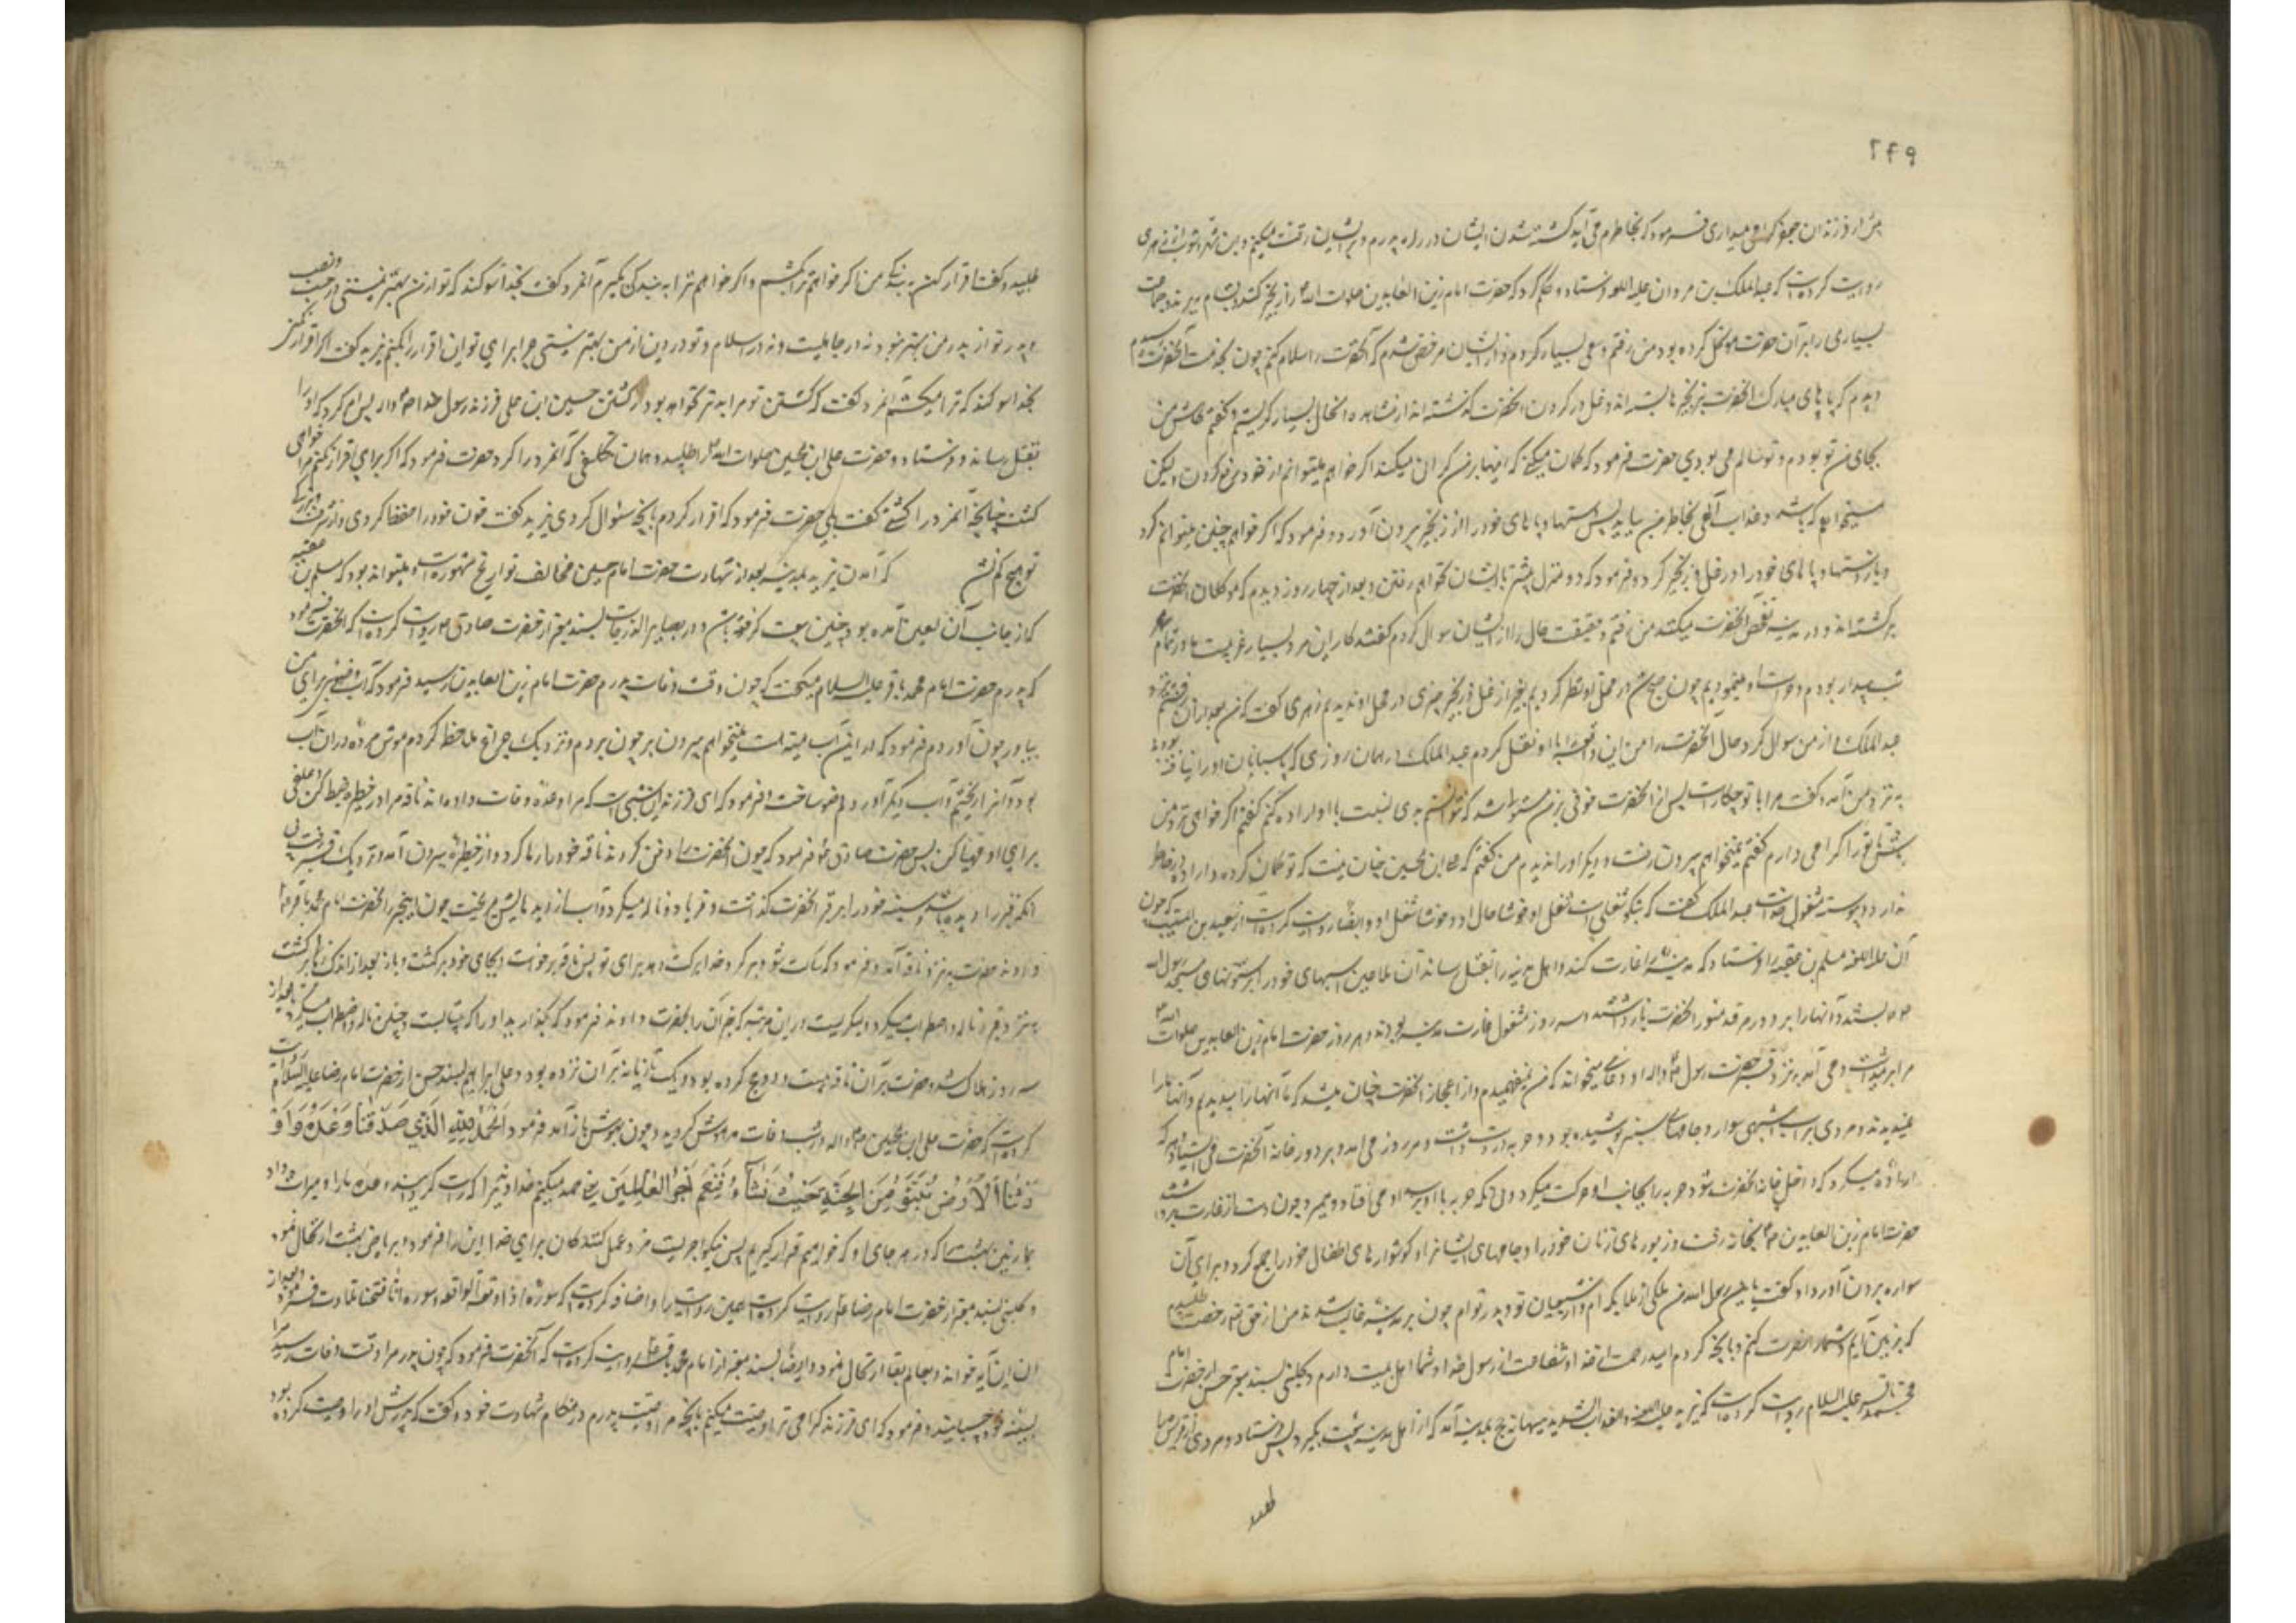 ۲۴۹
روایت کرده است که عبدالملک بن مروان علیه اللعنه فرستاد و حکم کرد که حضرت امام زین العابدین صلوات الله را زنجیر کنند و بشام برند و جماعت
بسیاری را بر آن حضرت موکل کرده بود من رفتم و سعی بسیار کردم و از ایشان مرخص شدم که آنحضرت را سلام کنم چون بخدمت آنحضرت رسیدم
دیدم که پاهای مبارک آنحضرت بزنجیرها بسته اند و غل در گردن آنحضرت گذشته اند از مشاهده انحال بسیار گریستم و گفتم کاش من
بجای تو بودم و تو سالم می بودی حضرت فرمود که گمان میکنی که اینها بر من گران میکند اگر خواهم میتوانم از خود دفع کردن ولیکن
میخواهم که باشد و عذاب آلهی بخاطر من بیاید پس دستها و پاهای خود را از زنجیر بیرون آورد و فرمود که اگر خواهم چنین میتوانم کرد
و باز دستها و پاهای خود را در غل و زنجیر کرد و فرمود که دو منزل بیشتر با ایشان نخواهم رفتن و بعد از چهار روز دیدم که موکلان آنحضرت
برگشته اند و در مدینه تفحص آنحضرت میکنند من رفتم و حقیقت حال را از ایشان سوال کردم گفتند کار این مرد بسیار غریبست ما در تمام
شب بیدار بودیم و حراست او مینمودیم چون صبح شد در محمل او نظر کردیم بغیر از غل و زنجیر چیزی در محمل او ندیدیم زهری گفت که من بعد از آن رفتم نزد
عبدالملک از من سوال کرد حال آنحضرت را من این واقعه را با او نقل کردم عبدالملک در همان روزی که پاسبانان او را نیافته بودند
به نزد من آمد و گفت مرا با تو چکار است پس از آنحضرت خوفی بر من مستولی شد که نتوانستم بدی نسبت با او اراده کنم گفتم اگر خواهی نزد من
باش تا تو را گرامی دارم گفت نمیخواهم بیرون رفت و دیگر او را ندیدم من گفتم که علی ابن الحسین چنان نیست که تو گمان کرده و اراده بخاطر
ندارد و پیوسته مشغول خود است عبدالملک گفت که نیکو شغلی است شغل او خوشا حال او و خوشا شغل او و ایضا روایت کرده است از سعید بن المسیب که چون
آن علیه اللعنه مسلم بن عقبه را فرستاد که مدینه را غارت کند و اهل مدینه را بقتل رساند آن ملاعین اسبهای خود را بر ستونهای مسجد رسول الله
بستند و آنها را بر دور مرقد منور آنحضرت بازداشتند و سه روز مشغول غارت مدینه بودند و هر روز حضرت امام زین العابدین صلوات الله
مرا برمیداشت و می آمد بنزد قبر حضرت رسول و دعائی میخواند که من نمیفهمیدم و از اعجاز آنحضرت چنان میشد که ما آنها را میدیدیم و آنها ما را
نمیدیدند و مردی بر اسب اشهبی سوار و جامهای سبز پوشیده بود و حربه در دست داشت و هر روز می آمد و بر در خانه آنحضرت می ایستاد و هر که
اراده میکرد که داخل خانه آنحضرت شود حربه را بجانب او حرکت میداد و بی آنکه حربه به او برسد او می افتاد و میمرد چون دست از غارت برداشتند
حضرت امام زین العابدین بخانه رفت و زیورهای زنان خود را و جامهای ایشان را و گوشوارهای اطفال خود را جمع کرد و برای آن
سواره بیرون آورد او گفت یابن رسول الله من ملکی از ملایکه ام و از شیعیان تو و پدر تو ام چون بر مدینه غالب شدند من از حق تعالی رخصت طلبیدم
که بزمین آیم و شما را نصرت کنم و بآنچه کردم امید رحمت از خدا و شفاعت از رسول خدا و شما اهل بیت دارم و کلینی بسند معتبر حسن از حضرت امام
محمد باقر علیه السلام روایت کرده است که یزید علیه اللعنه و العذاب الشدید ببهانه حج بمدینه آمد که از اهل مدینه بیعت بگیرد پس فرستاد و مردی از قریش را
طلبید
طلبید و گفت اقرار کن به بندگی من اگر خواهم ترا بکشم و اگر خواهم ترا به بندگی بگیرم آنمرد گفت بخدا سوگند که تو از من بهتر نیستی در حسب و نصب
و پدر تو از پدر من بهتر نبود نه در جاهلیت و نه در اسلام و تو در دین از من بهتر نیستی چرا برای تو این اقرار را بکنم یزید گفت اگر اقرار نکنی
بخدا سوگند که ترا میکشم آنمرد گفت که کشتن تو مرا بدتر نخواهد بود از کشتن حسین ابن علی فرزند رسول خدا پس امر کرد که او را
بقتل رساندند و فرستاد و حضرت علی ابن الحسین صلوات الله را طلبید و همان تکلیفی که آنمرد را کرد حضرت فرمود که اگر برای تو اقرار نکنم مرا خواهی
کشت چنانچه آنمرد را کشتی گفت بلی حضرت فرمود که اقرار کردم بآنچه سئوال کردی یزید گفت خون خود را حفظ کردی و از شرف و بزرگی
تو هیچ کم نشد که آمدن یزید بمدینه بعد از شهادت حضرت امام حسین مخالف تواریخ مشهوره است و میتواند بود که مسلم بن عقبه
که از جانب آن لعین آمده بود چنین بیعت گرفته باشد و در بصایر الدرجات بسند معتبر از حضرت صادق روایت کرده است که آنحضرت فرمود
که پدرم حضرت امام محمد باقر علیه السلام میگفت که چون وقت وفات پدرم حضرت امام زین العابدین رسید فرمود که آب وضوئی برای من
بیاور چون آوردم فرمود که در این آب میته است نمیخواهم بیرون بر چون بردم و نزدیک چراغ ملاحظه کردم موش مرده در آن آب
بود آنرا ریختم و آب دیگر آوردم وضو ساخت و فرمود که ای فرزند این شبی است که مرا وعده وفات داده اند ناقه مرا در خطیره ضبط کن و علفی
برای او مهیا کن پس حضرت صادق فرمود که چون آنحضرت را دفن کردند ناقه خود را رها کرد و از خطیره بیرون آمد و نزدیک قبر رفت بی
آنکه قبر را دیده باشد و سینه خود را بر قبر آنحضرت گذاشت و فریاد و ناله میکرد و آب از دیدهایش میریخت چون این خبر را بحضرت امام محمد باقر
دادند حضرت به نزد ناقه آمد و فرمود که ساکت شو و برگرد خدا برکت دهد برای تو پس ناقه برخواست و بجای خود برگشت و باز بعد از اندک زمانی برگشت
به نزد قبر و ناله و اضطراب میکرد و میگریست در این مرتبه که خبر آن را بحضرت دادند فرمود که بگذارید او را که بیتابست و چنین ناله و اضطراب میکرد تا بعد از
سه روز هلاک شد و حضرت بر آن ناقه بیست و دو حج کرده بود و یک تازیانه بر آن نزده بود و علی ابراهیم بسند حسن از حضرت امام رضا علیه السلام روایت
کرده است که حضرت علی ابن الحسین در شب وفات مدهوش گردید و چون بهوش باز آمد فرمود اَلحَمدُ لِلّهِ الَّذي صَدَقَنا وَعدَهُ وَاَو
رَثَنَا الأَرضَ نَتَبَوَّءُ مِنَ الجَنَّةِ حَيثُ نَشآءُ فَنِعمَ اَجرُ العٰامِلينَ یعنی حمد میکنم خداوندی را که راست گردانید وعده ما را و میراث داد
بما زمین بهشت را که در هر جای او که خواهیم قرار گیریم پس نیکو اجریست مزد عمل کنندگان برای خدا این را فرمود و بریاض بهشت ارتحال نمود
و کلینی بسند معتبر از حضرت امام رضا روایت کرده است عین روایت را و اضافه کرده است که سوره اذا وقعت الواقعه و سوره انا فتحنا تلاوت فرمود و بعد از
آن این آیه خواند و بعالم بقا ارتحال نمود و ایضا بسند معتبر از امام محمد باقر روایت کرده است که آنحضرت فرمود که چون پدر مرا وقت وفات رسید مرا
بسینه خود چسبانید و فرمود که ای فرزند گرامی ترا وصیت میکنم بآنچه مرا وصیت پدرم در هنگام شهادت خود و گفت که پدرش او را وصیت کرده بود